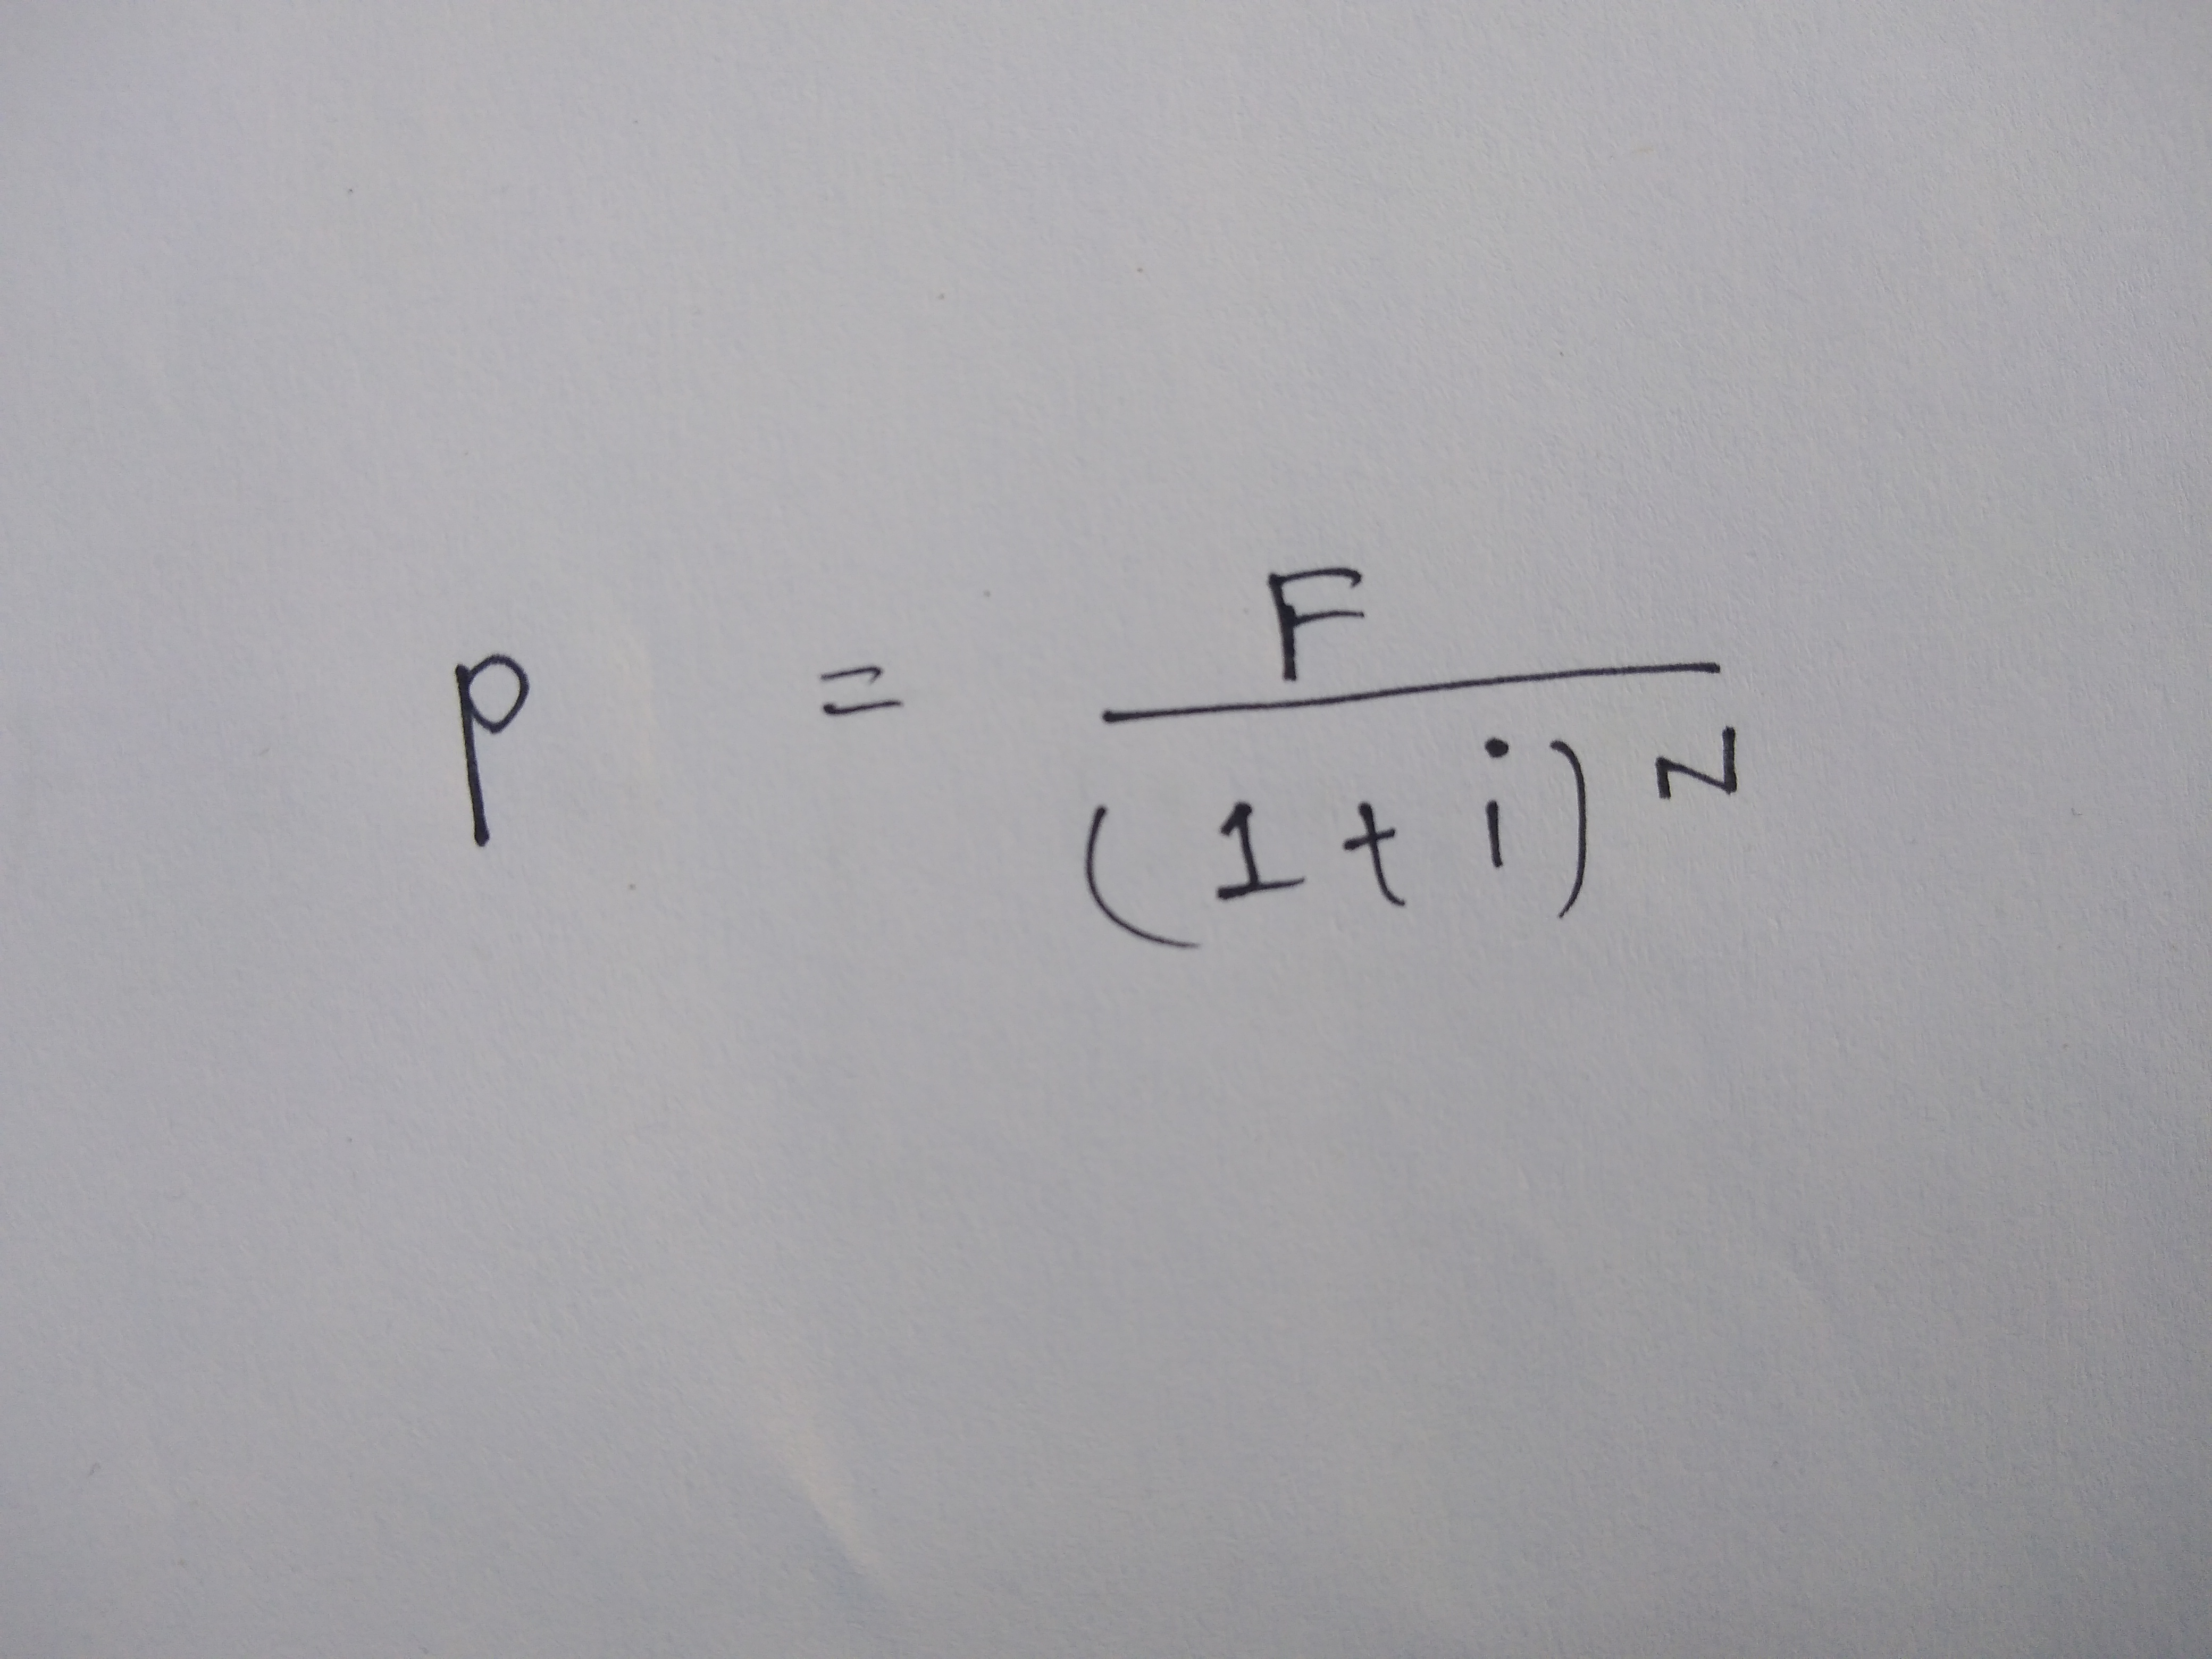 p = F / (1 + i)^N